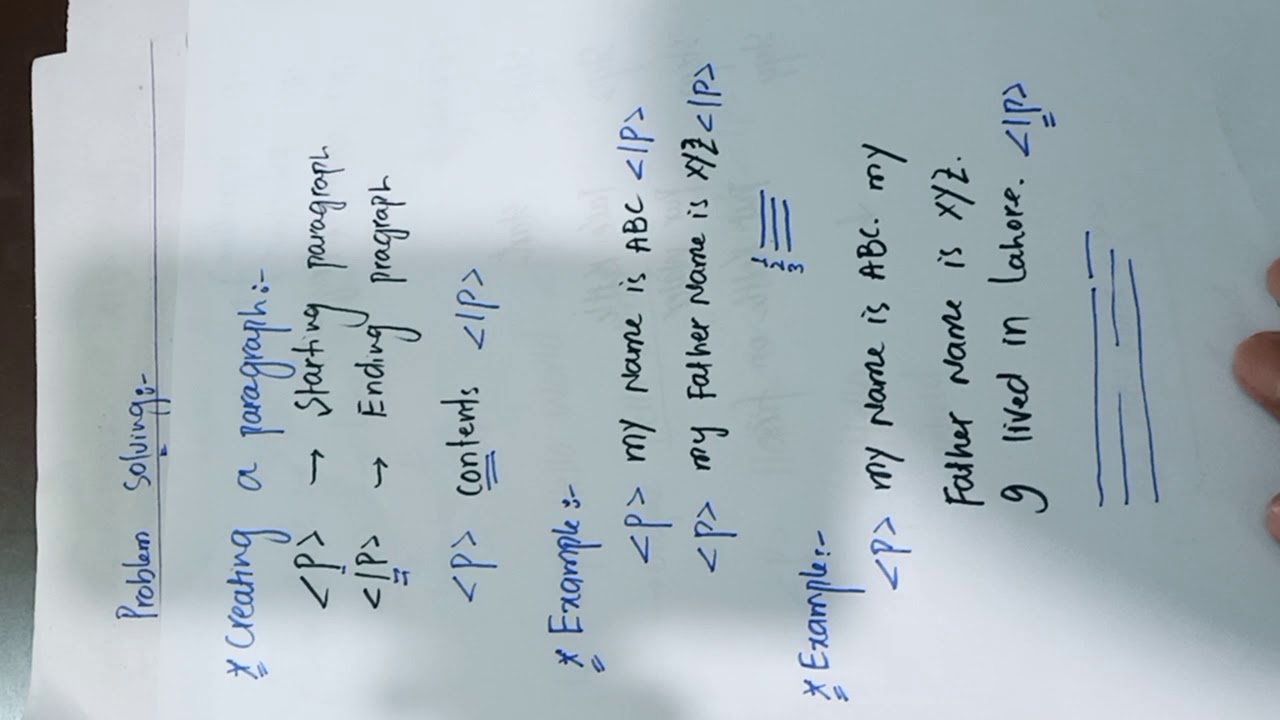 Problem Solving:-
* Creating a paragraph:-
<p> → Starting paragraph
</p> → Ending pragraph
<p> contents </p>
* Example:-
<p> my Name is ABC </p>
<p> my Father Name is XYZ </p>
1
2
3
* Example:-
<p> my Name is ABC. my
Father Name is XYZ.
I lived in Lahore. </p>